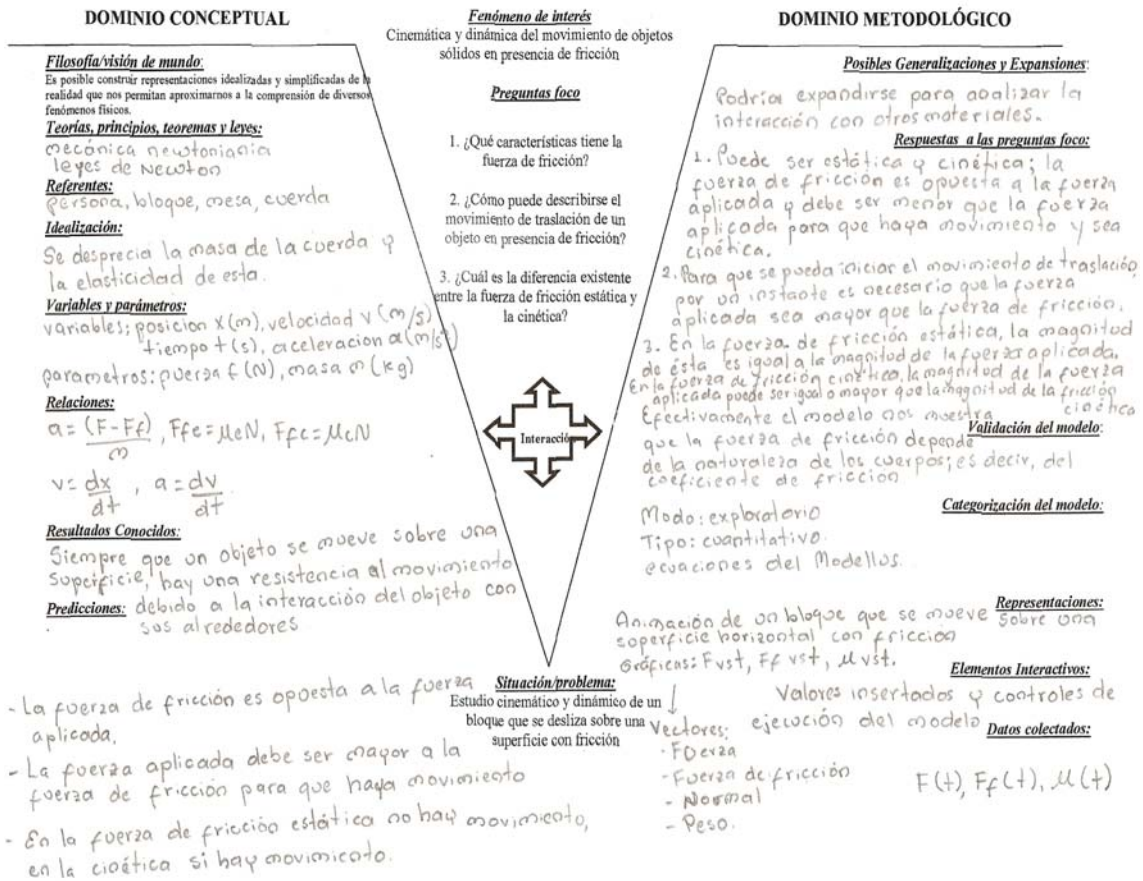 DOMINIO CONCEPTUAL
Filosofía/visión de mundo:
Es posible construir representaciones idealizadas y simplificadas de la
realidad que nos permitan aproximarnos a la comprensión de diversos
fenómenos físicos.
Teorías, principios, teoremas y leyes:
mecánica newtoniania
leyes de Newton
Referentes:
persona, bloque, mesa, cuerda
Idealización:
Se desprecia la masa de la cuerda y
la elasticidad de esta.
Variables y parámetros:
variables: posicion x(m), velocidad v (m/s)
tiempo t(s), aceleracion a(m/s²)
parametros: fuerza f (N), masa m (kg)
Relaciones:
a = (F - Ff)/m, Ffe = μeN, Ffc = μcN
v = dx/dt, a = dv/dt
Resultados Conocidos:
Siempre que un objeto se mueve sobre una
superficie, hay una resistencia al movimiento
debido a la interacción del objeto con
sus alrededores
Predicciones:
- La fuerza de fricción es opuesta a la fuerza
aplicada.
- La fuerza aplicada debe ser mayor a la
fuerza de fricción para que haya movimiento
- En la fuerza de fricción estática no hay movimiento,
en la cinética si hay movimiento.
Fenómeno de interés
Cinemática y dinámica del movimiento de objetos
sólidos en presencia de fricción
Preguntas foco
1. ¿Qué características tiene la
fuerza de fricción?
2. ¿Cómo puede describirse el
movimiento de traslación de un
objeto en presencia de fricción?
3. ¿Cuál es la diferencia existente
entre la fuerza de fricción estática y
la cinética?
Interacción
Situación/problema:
Estudio cinemático y dinámico de un
bloque que se desliza sobre una
superficie con fricción
DOMINIO METODOLÓGICO
Posibles Generalizaciones y Expansiones:
Podría expandirse para analizar la
interacción con otros materiales.
Respuestas a las preguntas foco:
1. Puede ser estática y cinética; la
fuerza de fricción es opuesta a la fuerza
aplicada y debe ser menor que la fuerza
aplicada para que haya movimiento y sea
cinética.
2. Para que se pueda iniciar el movimiento de traslación,
por un instante es necesario que la fuerza
aplicada sea mayor que la fuerza de fricción.
3. En la fuerza de fricción estática, la magnitud
de ésta es igual a la magnitud de la fuerza aplicada.
En la fuerza de fricción cinética, la magnitud de la fuerza
aplicada puede ser igual o mayor que la magnitud de la fricción
cinética
Validación del modelo:
Efectivamente el modelo nos muestra
que la fuerza de fricción depende
de la naturaleza de los cuerpos; es decir, del
coeficiente de fricción
Categorización del modelo:
Modo: exploratorio
Tipo: cuantitativo.
ecuaciones del Modellus.
Representaciones:
Animación de un bloque que se mueve sobre una
superficie horizontal con fricción
Gráficas: F vs t, Ff vs t, μ vs t.
Vectores:
- Fuerza
- Fuerza de fricción
- Normal
- Peso.
Elementos Interactivos:
Valores insertados y controles de
ejecución del modelo
Datos colectados:
F(t), Ff(t), μ(t)